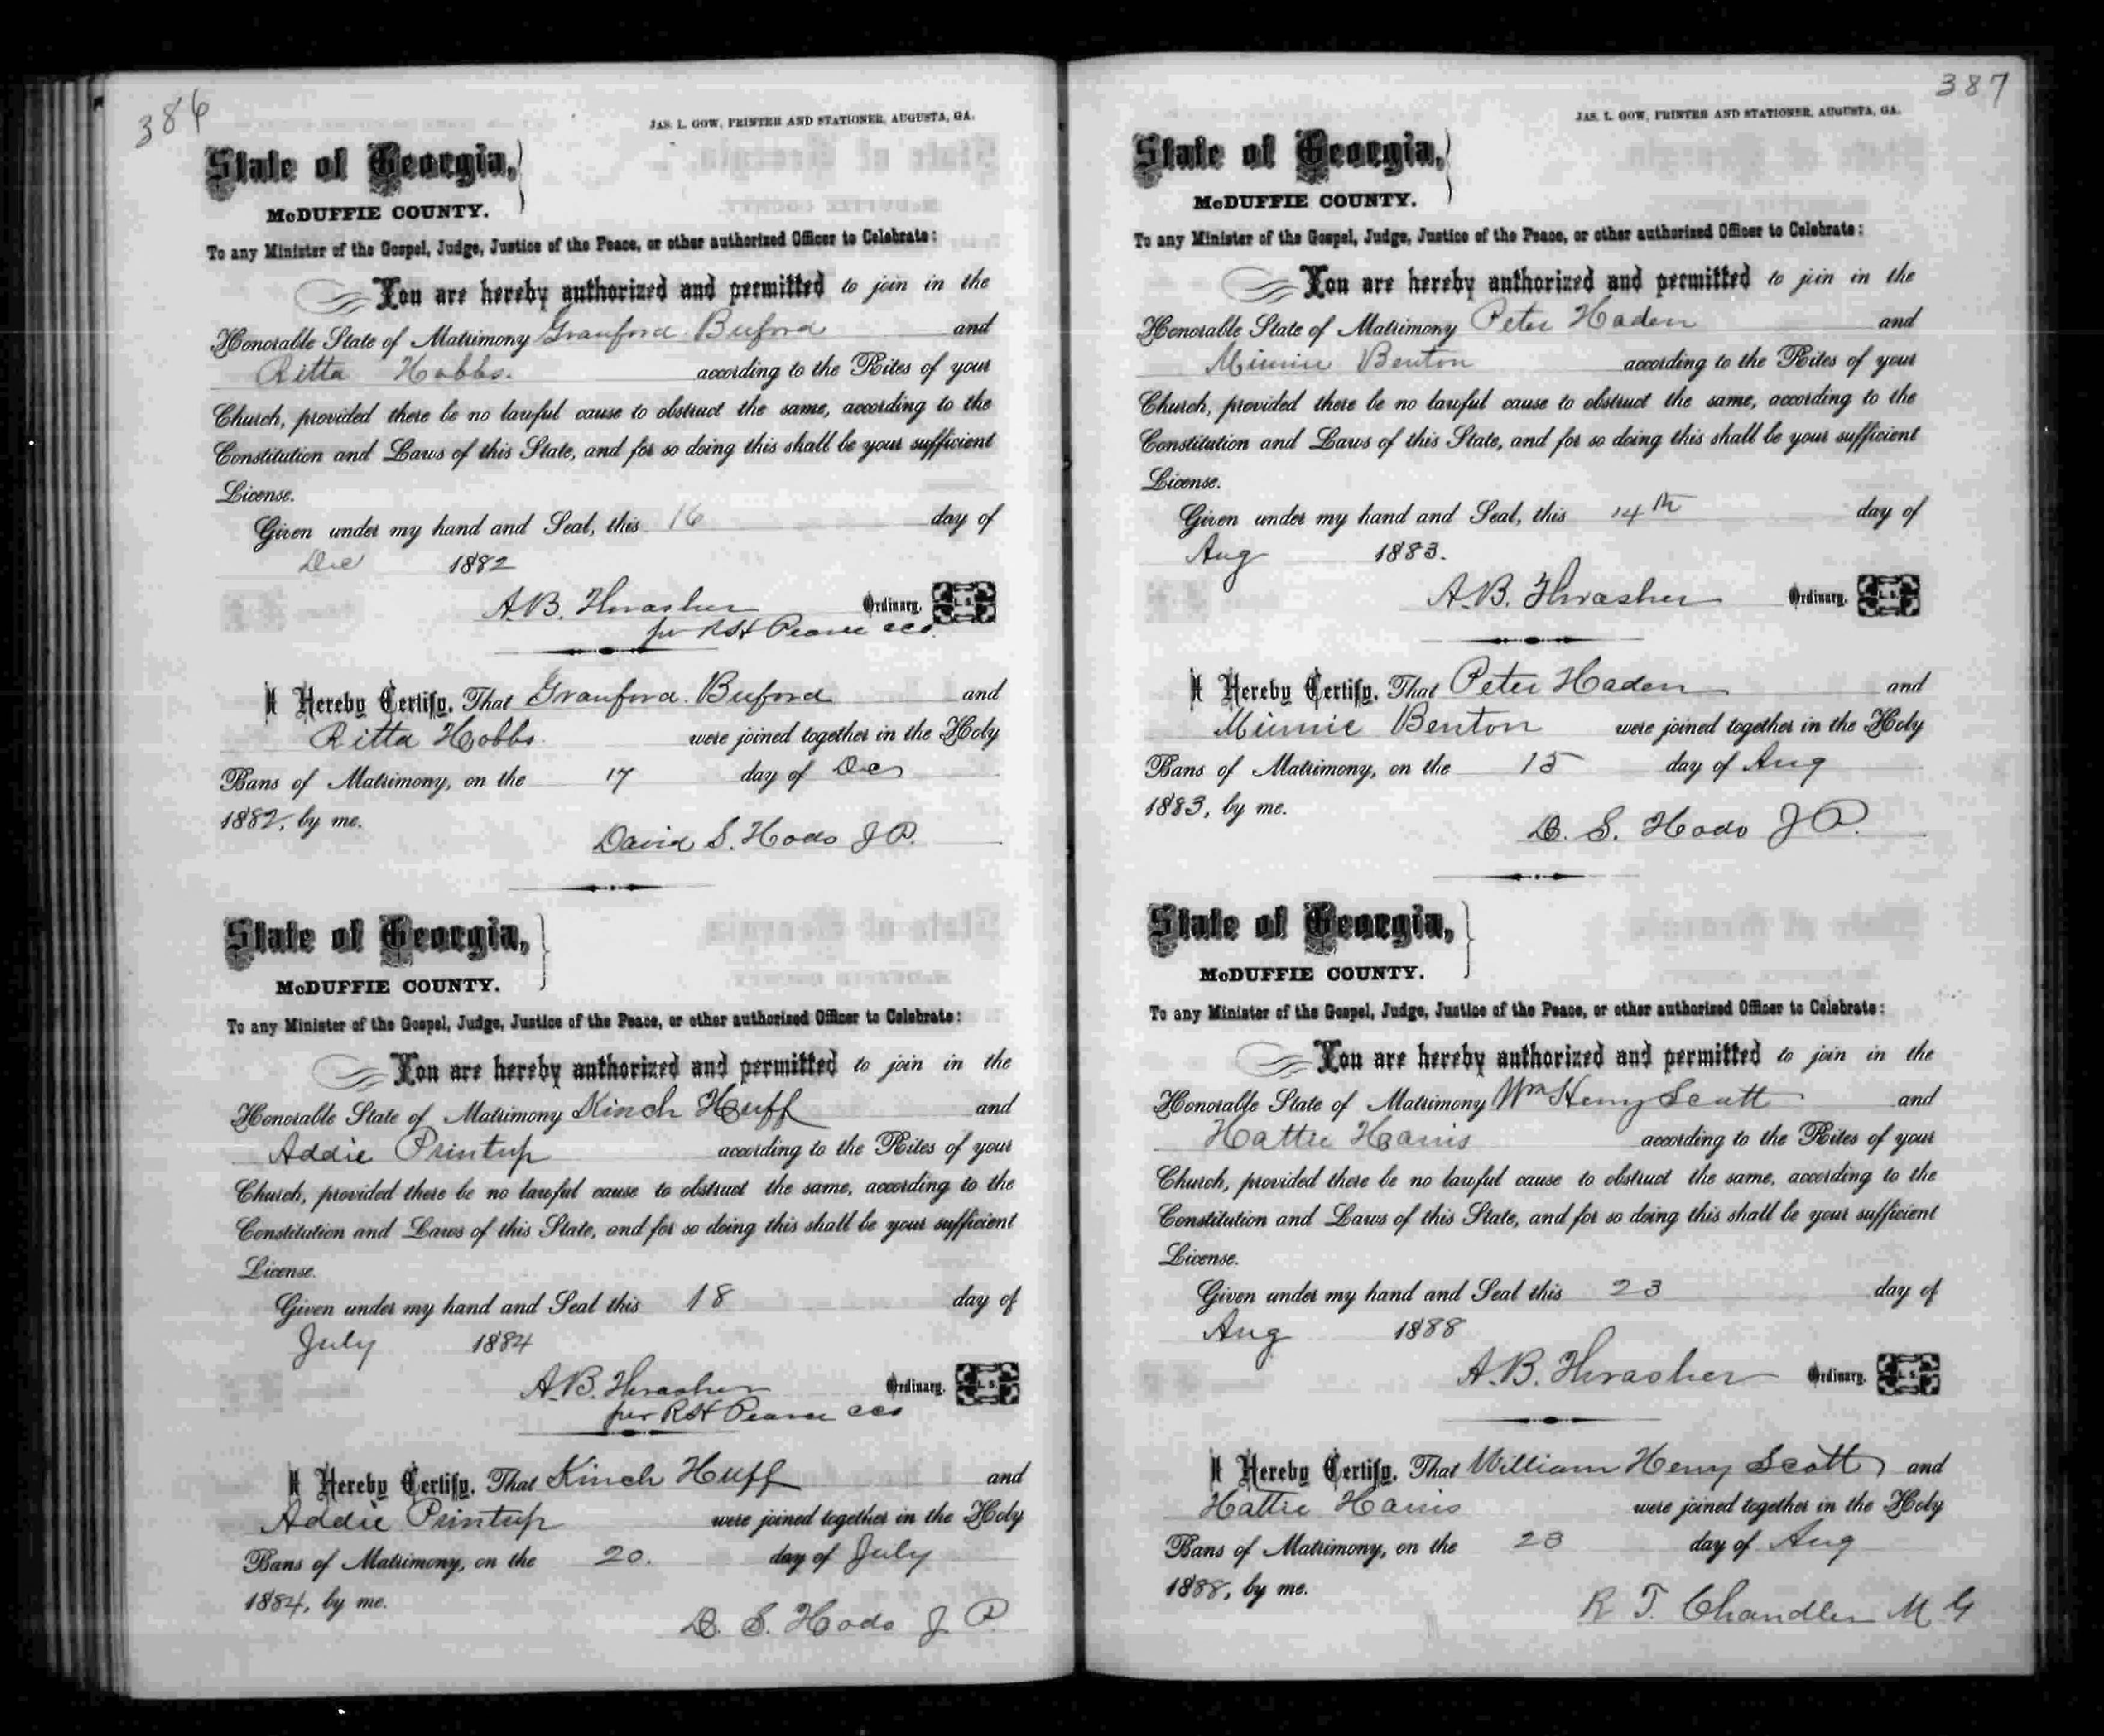 386
JAS. L. GOW, PRINTER AND STATIONER, AUGUSTA, GA.
State of Georgia,
McDUFFIE COUNTY.
To any Minister of the Gospel, Judge, Justice of the Peace, or other authorized Officer to Celebrate:
You are hereby authorized and permitted to join in the
Honorable State of Matrimony Granford Buford and
Ritta Hobbs. according to the Rites of your
Church, provided there be no lawful cause to obstruct the same, according to the
Constitution and Laws of this State, and for so doing this shall be your sufficient
License.
Given under my hand and Seal, this 16 day of
Dec 1882
A.B. Thrasher Ordinary. L. S.
per RH Pearce cco.
I Hereby Certify, That Granford Buford and
Ritta Hobbs. were joined together in the Holy
Bans of Matrimony, on the 17 day of Dec
1882, by me.
David S. Hodo J P.
State of Georgia,
McDUFFIE COUNTY.
To any Minister of the Gospel, Judge, Justice of the Peace, or other authorized Officer to Celebrate:
You are hereby authorized and permitted to join in the
Honorable State of Matrimony Kinch Huff and
Addie Printup according to the Rites of your
Church, provided there be no lawful cause to obstruct the same, according to the
Constitution and Laws of this State, and for so doing this shall be your sufficient
License.
Given under my hand and Seal this 18 day of
July 1884
A.B. Thrasher Ordinary. L. S.
per RH Pearce cco
I Hereby Certify, That Kinch Huff and
Addie Printup were joined together in the Holy
Bans of Matrimony, on the 20. day of July
1884, by me.
D. S. Hodo J P.
387
JAS. L. GOW, PRINTER AND STATIONER, AUGUSTA, GA.
State of Georgia,
McDUFFIE COUNTY.
To any Minister of the Gospel, Judge, Justice of the Peace, or other authorized Officer to Celebrate:
You are hereby authorized and permitted to join in the
Honorable State of Matrimony Peter Haden and
Minnie Benton according to the Rites of your
Church, provided there be no lawful cause to obstruct the same, according to the
Constitution and Laws of this State, and for so doing this shall be your sufficient
License.
Given under my hand and Seal, this 14th day of
Aug 1883.
A.B. Thrasher Ordinary. L. S.
I Hereby Certify, That Peter Haden and
Minnie Benton were joined together in the Holy
Bans of Matrimony, on the 15 day of Aug
1883, by me.
D. S. Hodo J P.
State of Georgia,
McDUFFIE COUNTY.
To any Minister of the Gospel, Judge, Justice of the Peace, or other authorized Officer to Celebrate:
You are hereby authorized and permitted to join in the
Honorable State of Matrimony Wm Henry Scott and
Hattie Harris according to the Rites of your
Church, provided there be no lawful cause to obstruct the same, according to the
Constitution and Laws of this State, and for so doing this shall be your sufficient
License.
Given under my hand and Seal this 23 day of
Aug 1888
A.B. Thrasher Ordinary. L. S.
I Hereby Certify, That William Henry Scott and
Hattie Harris were joined together in the Holy
Bans of Matrimony, on the 23 day of Aug
1888, by me.
R T. Chandler M G